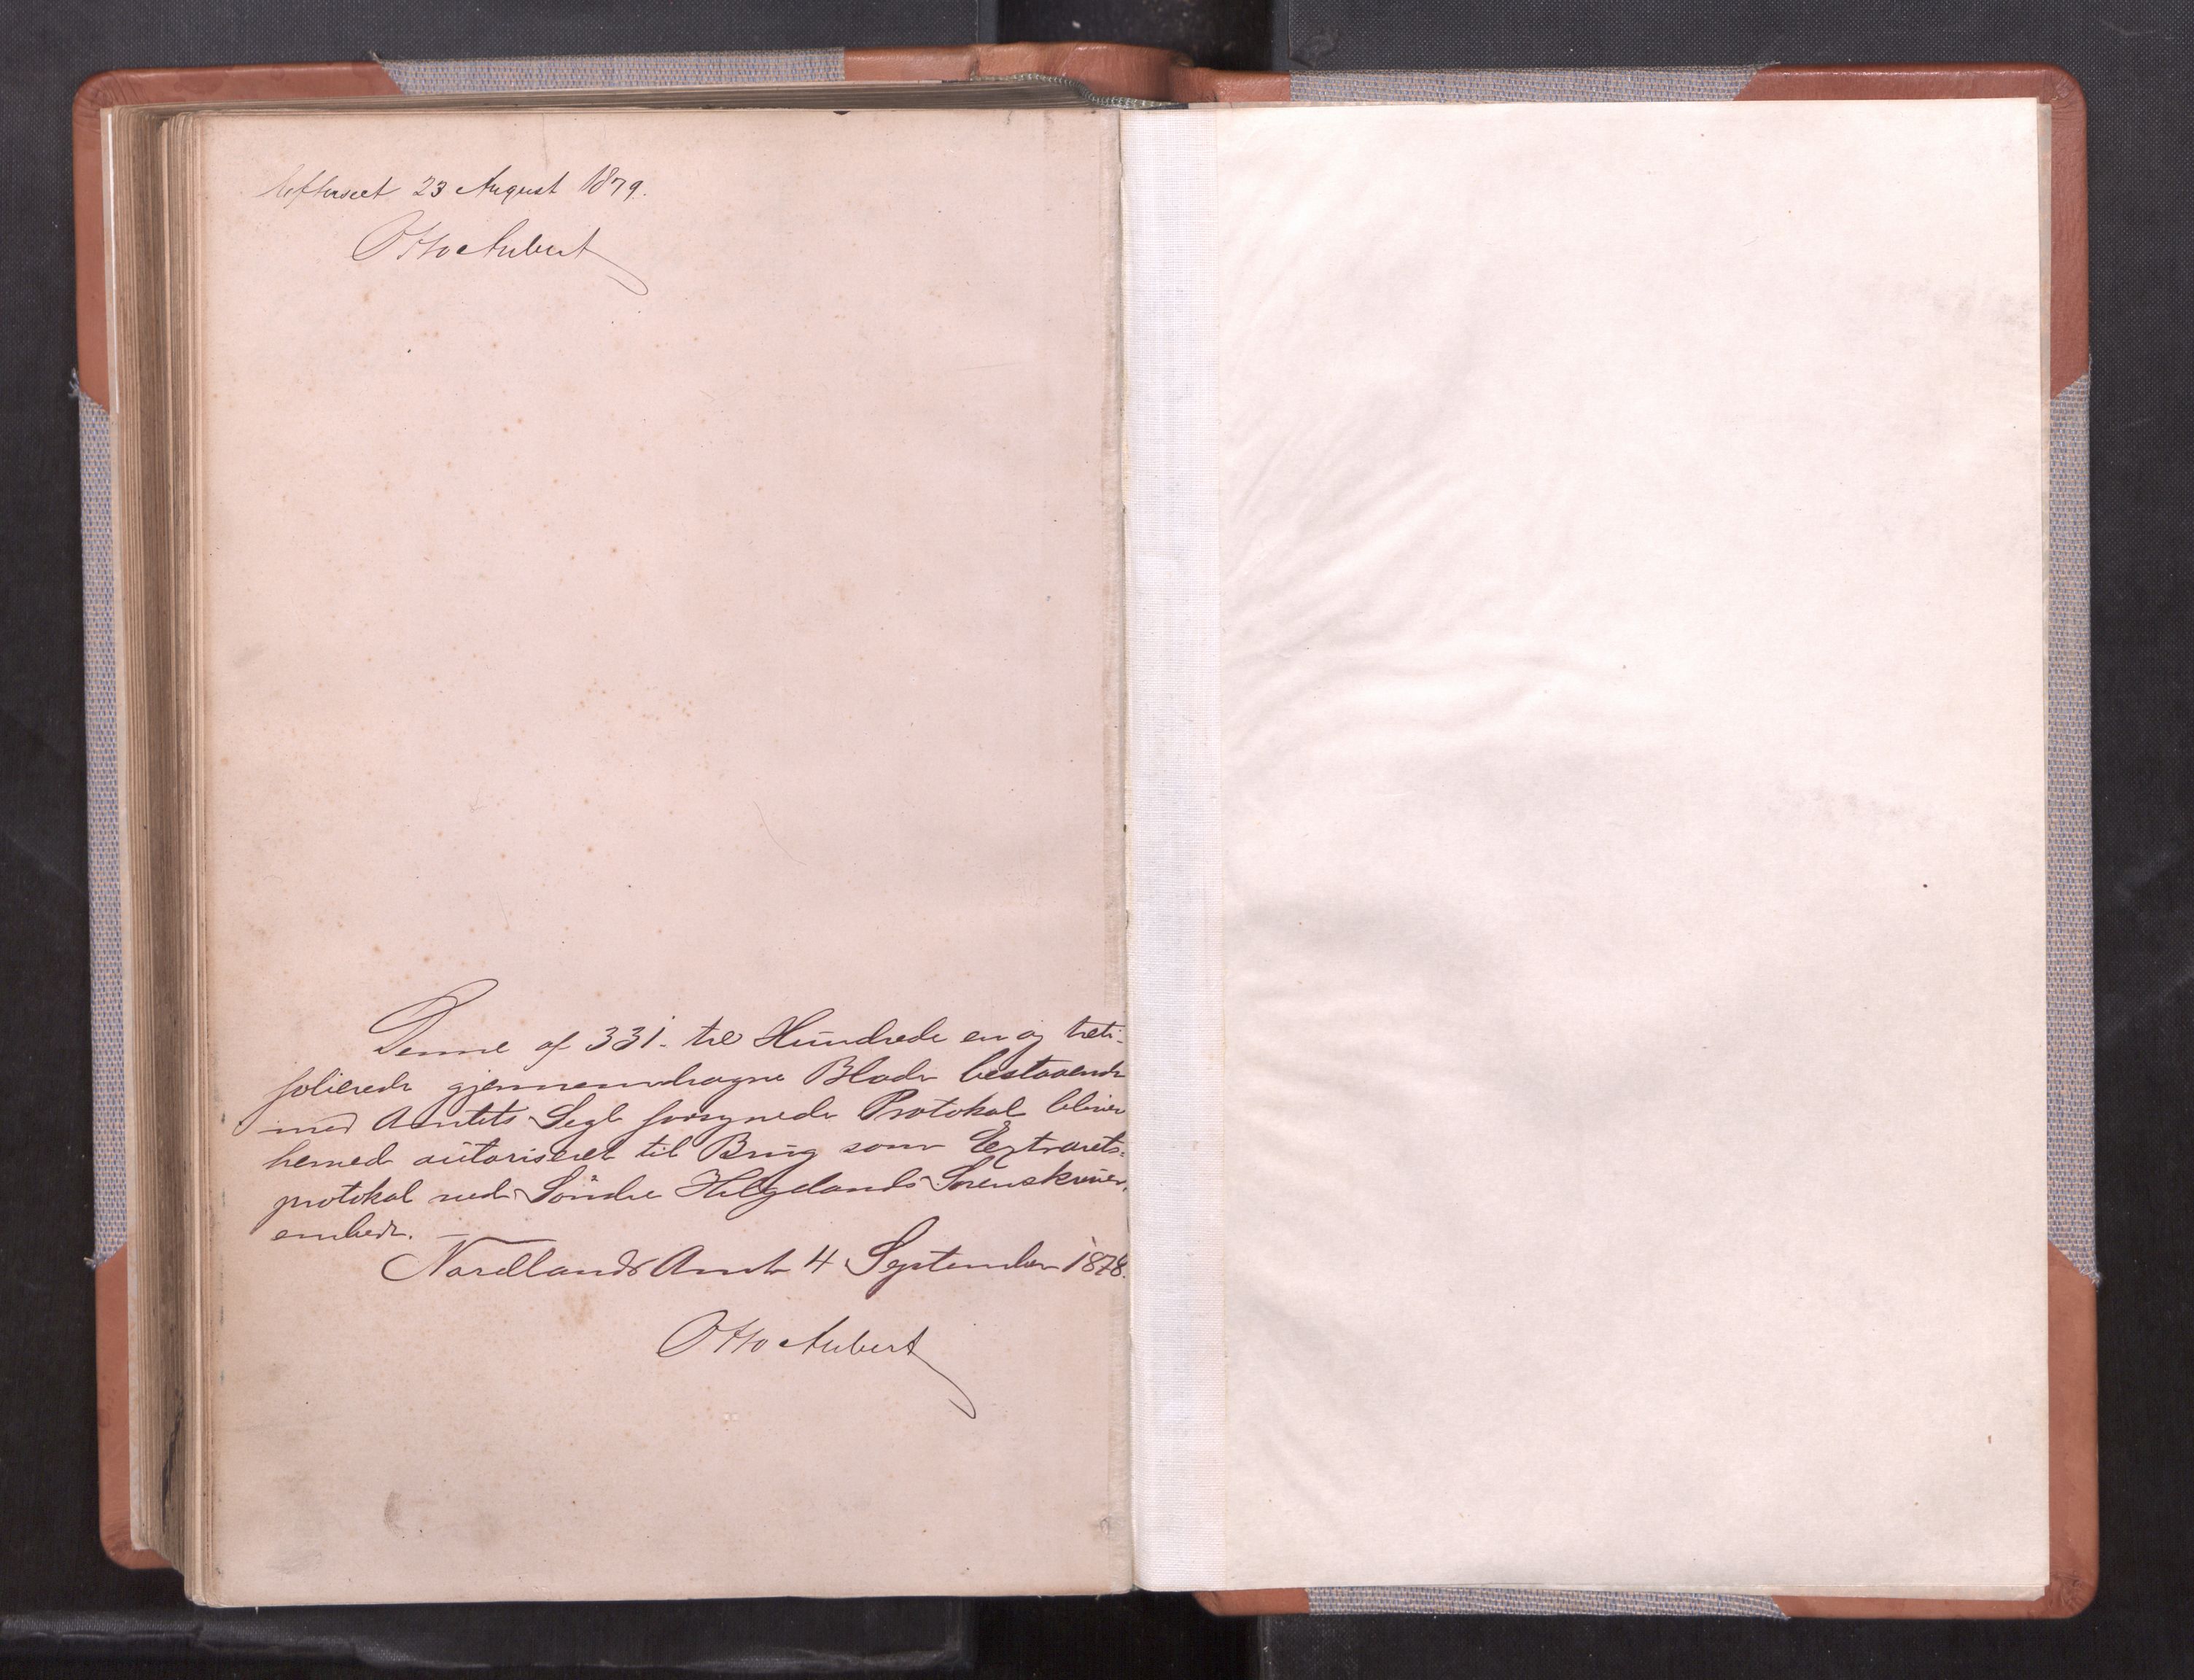 Efterseet 23 August 1879.
Otto Aubert
Denne af 331 - tre Hundrede en og treti -
folierede gjennemdragne Blade bestaaende
med Amtets Segl forsynede Protokol bliver
herved autoriseret til Brug som Extrarets-
protokol ved Søndre Helgelands Sorenskriver-
embede. —
Nordlands Amt 4 September 1878.
Otto Aubert